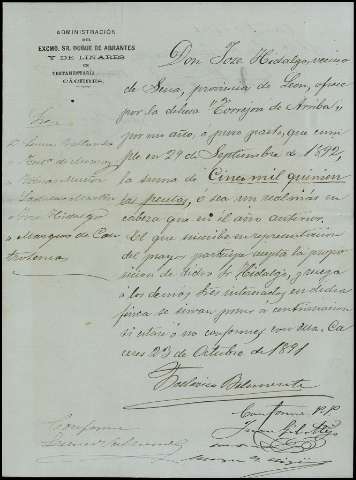 ADMINISTRACIÓN
DEL
EXCMO. SR. DUQUE DE ABRANTES
Y DE LINARES
EN
TESTAMENTARÍA
CÁCERES.
Don José Hidalgo, vecino
de Sena, provincia de Leon, ofrece
por la dehesa "Torrejon de Arriba",
por un año, a puro pasto, que cum
ple en 29 de Septiembre de 1892,
la suma de Cinco mil quinien
tas pesetas, ó sea un real más en
cabeza que en el año anterior.
El que suscribe en representacion
del mayor participe acepta la propo
sicion de dicho Sr. Hidalgo, y ruega
á los demás tres interesados en dicha
finca se sirvan poner a continuacion
si están ó no conformes con ella. Ca
ceres 23 de Octubre de 1891
Conforme
Conforme P.P.
Juan
Sres
José Hidalgo
Marques de Cas